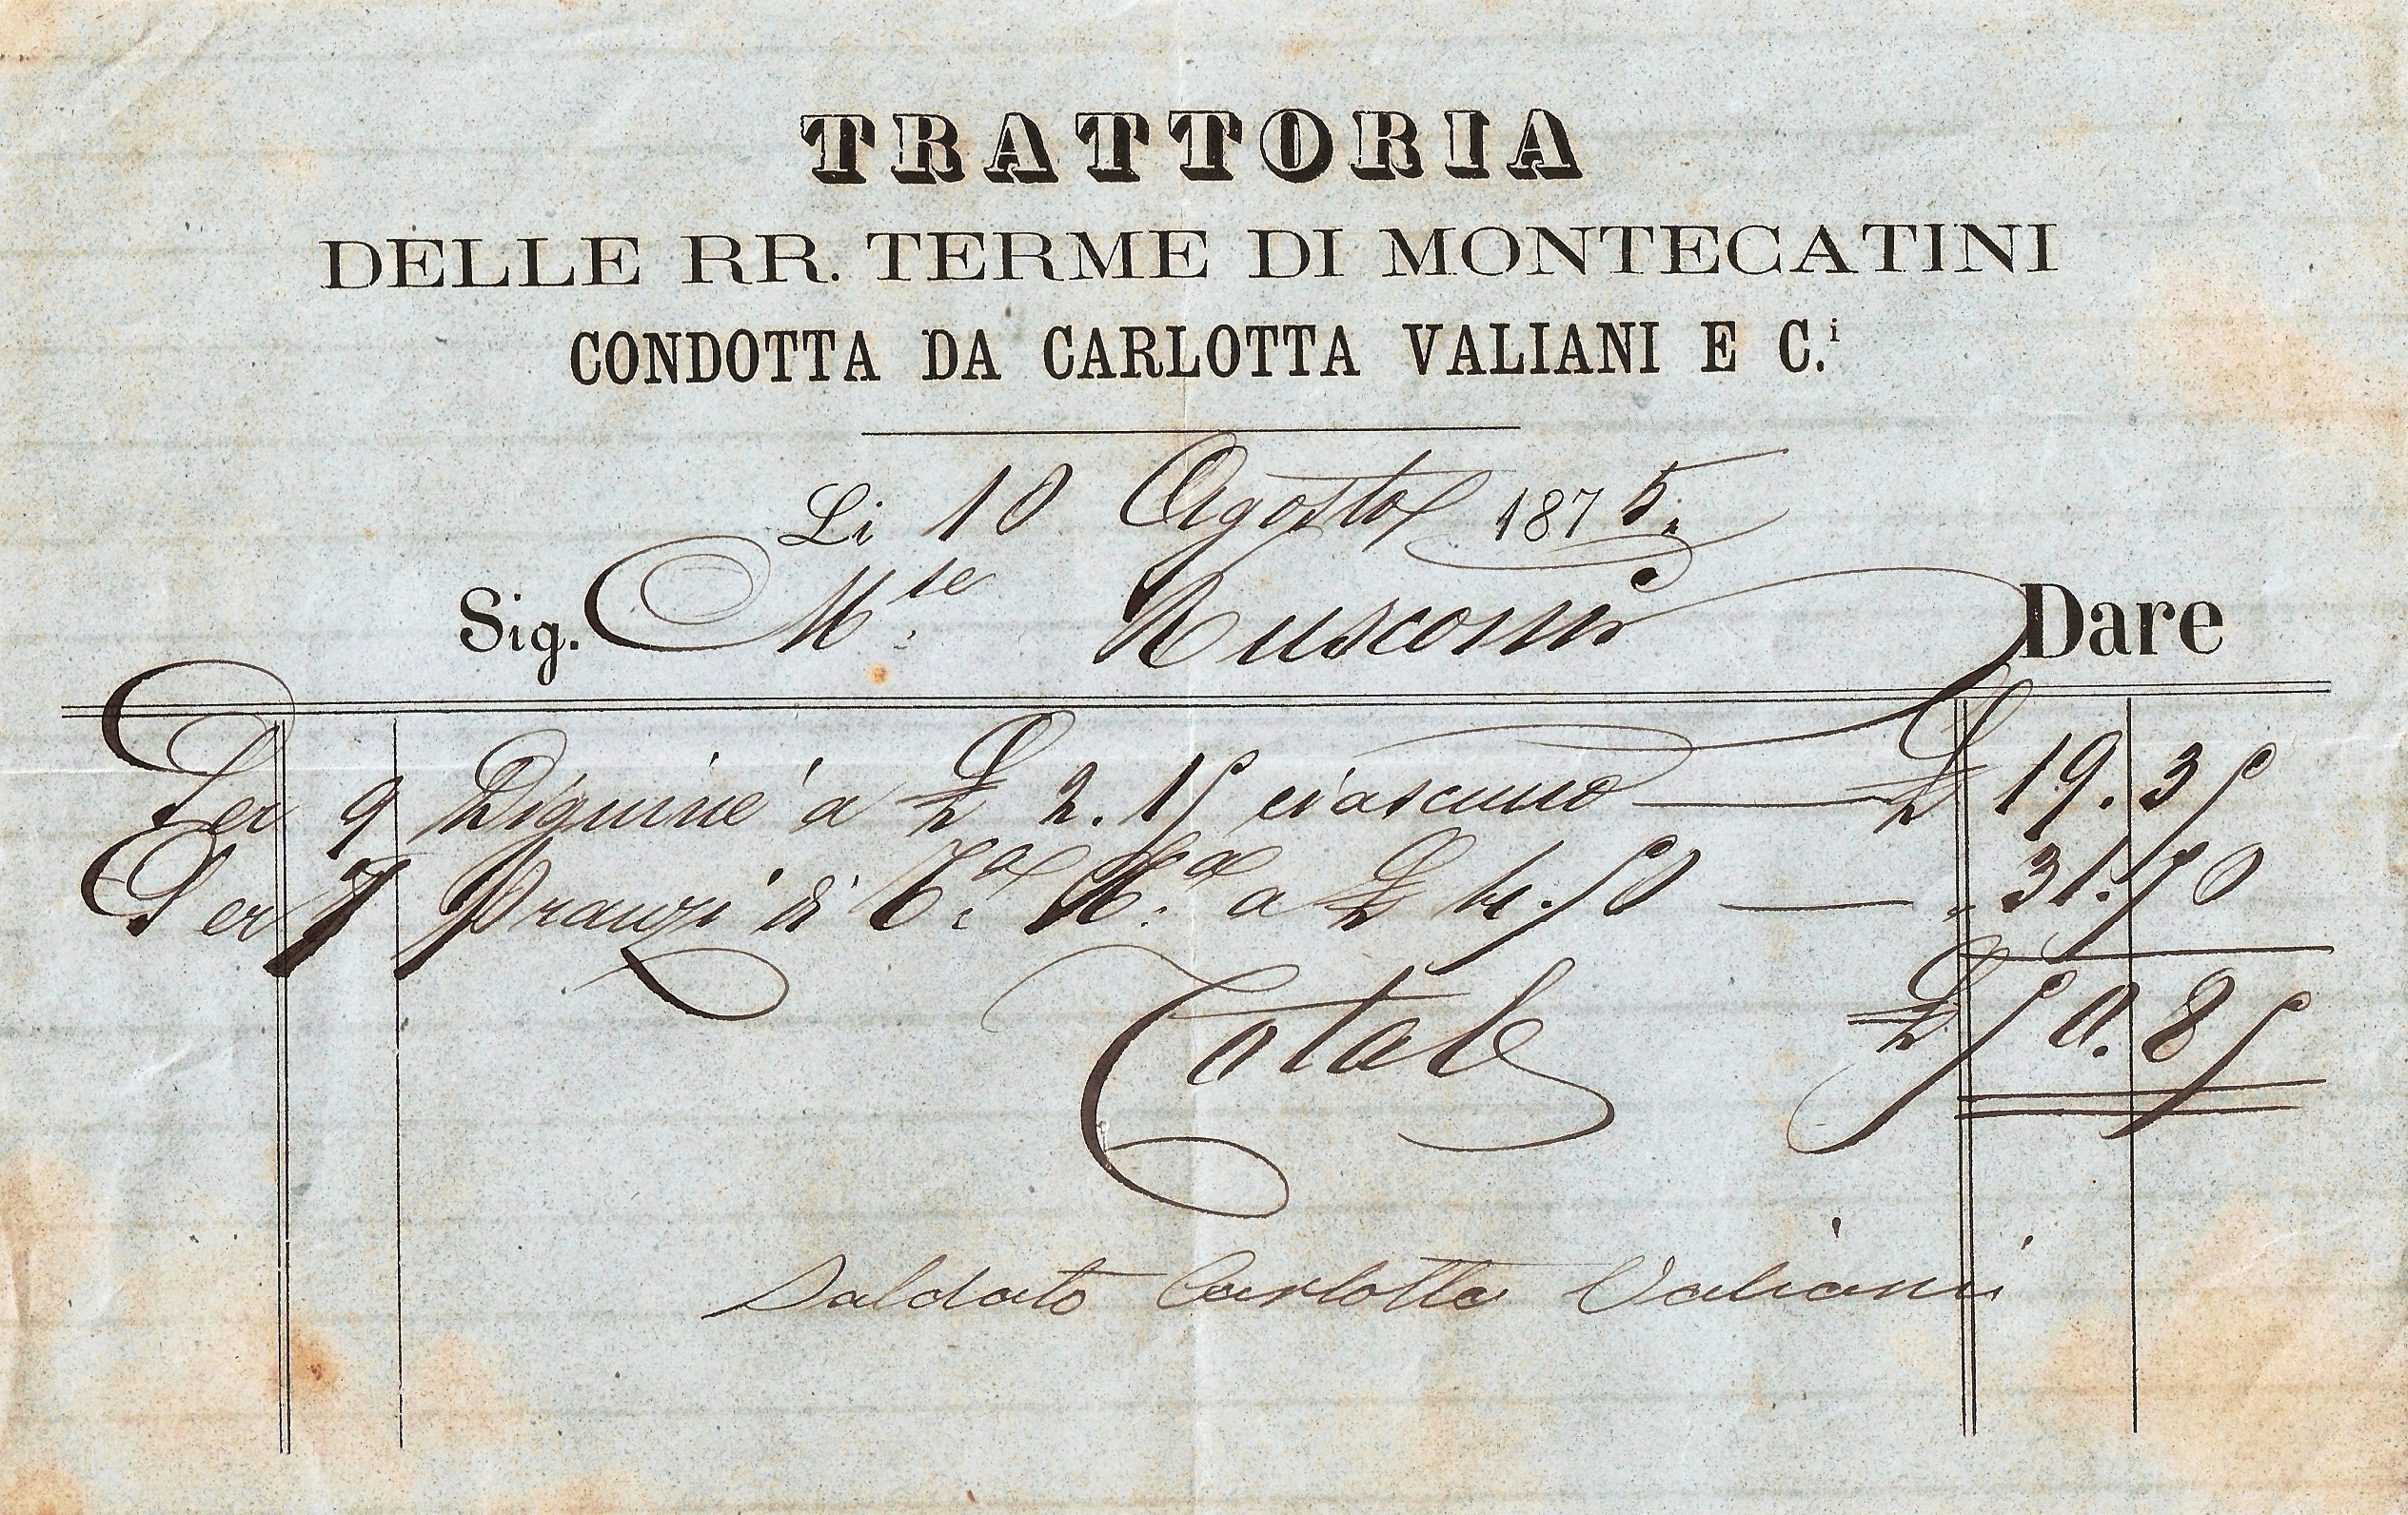 TRATTORIA
DELLE RR. TERME DI MONTECATINI
CONDOTTA DA CARLOTTA VALIANI E C.i
Li 10 Agosto 1875.
Sig. Mse. Rusconi Dare
Per 9 Digiuné a £ 2.15 ciascuno £ 19.35
Per 7 Pranzi di Ta. Ra. a £ 4.50 " 31.50
Totale £ 50.85
Saldato Carlotta Valiani